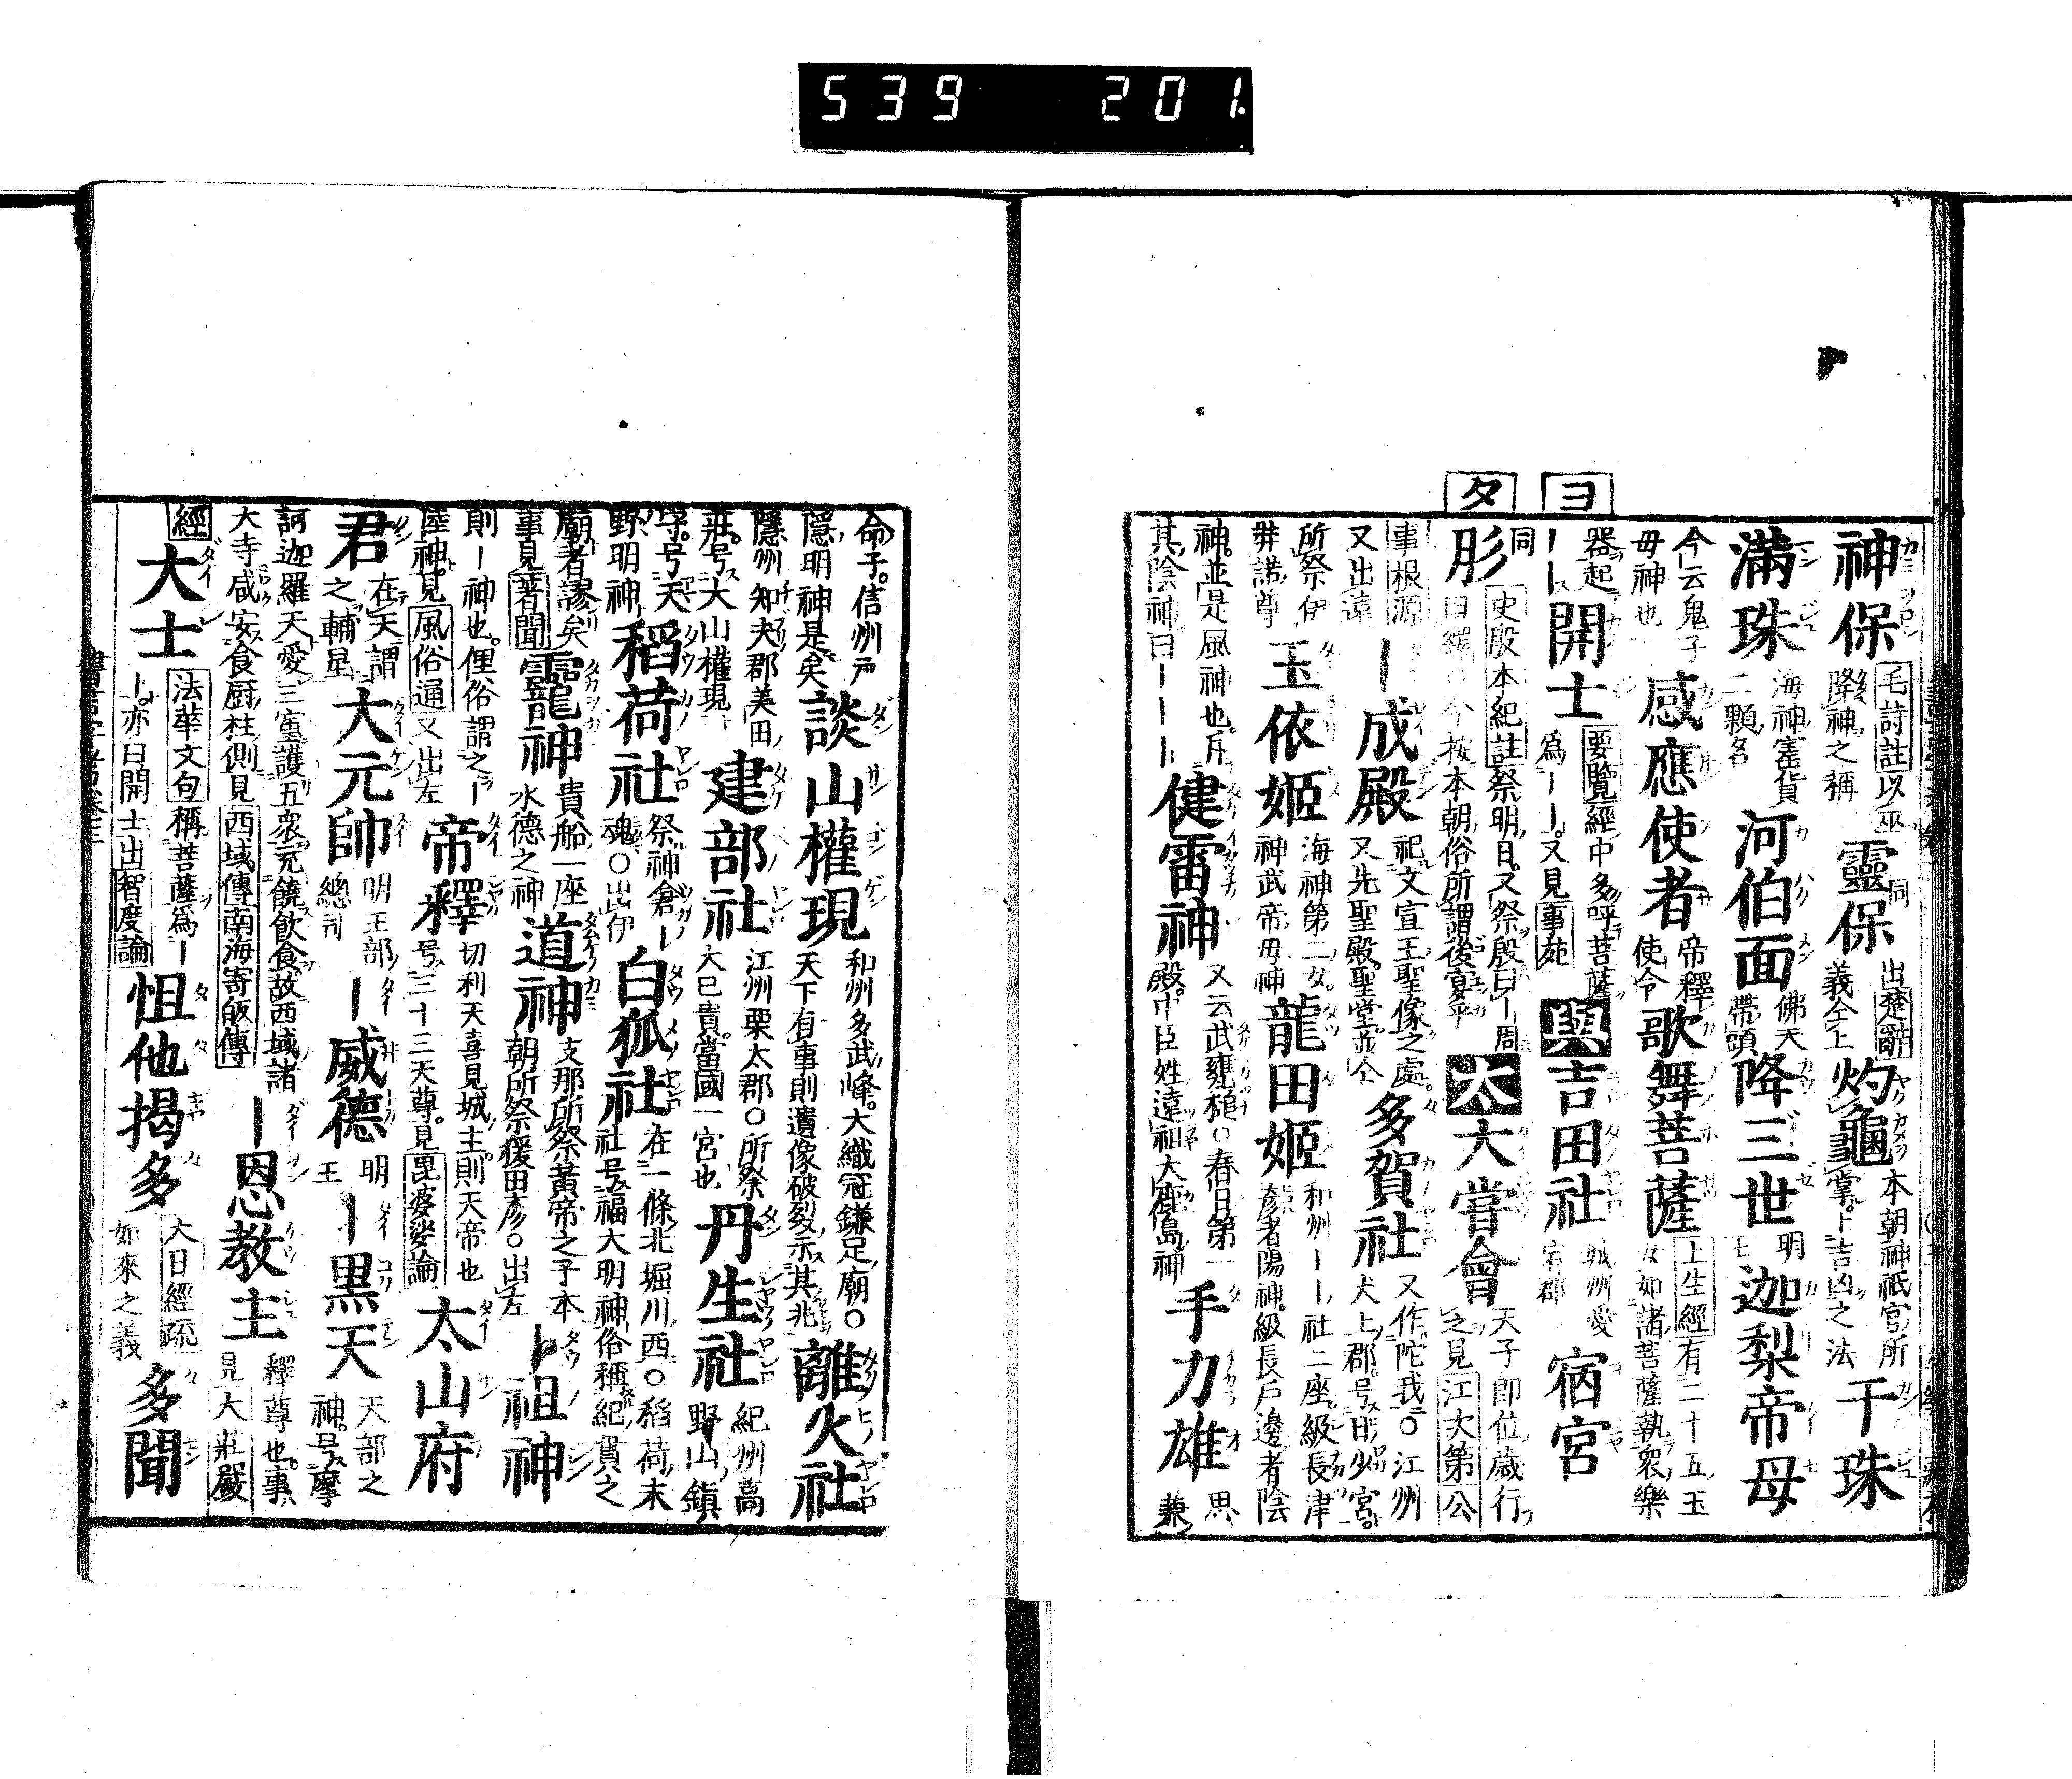 539 201
ヨ
タ
神保 毛詩註以巫降神之稱 靈保 同出楚辭義仝上 灼龜 本朝神祇官所掌卜吉凶之法 干珠
滿珠 海神寳貨二顆名 河伯面 佛天帶頭 降三世 明王 迦梨帝母
今云鬼子母神也 感應使者 帝釋使令 歌舞菩薩 上生經有二十五玉女如諸菩薩執衆樂
器起ーー 開士 要覽經中多呼菩薩爲ーー又見事苑 與 吉田社 城州愛宕郡 宿宮
肜 同 史殷本紀註祭明日又祭殷曰ー周曰繹○今按本朝俗所謂後宴乎 太 大嘗會 天子即位歳行之見江次第公
事根源又出遠 ー成殿 祀文宣王聖像之處又先聖殿聖堂並仝 多賀社 又作陀我○江州犬上郡号日少宮
所祭伊弉諾尊 玉依姬 海神第二女神武帝母神 龍田姬 和州ーー社二座級長津彦者陽神級長戶邊者陰
神並是風神也斥其陰神曰ーーー 健雷神 又云武甕槌○春日第一殿中臣姓遠祖大鹿島神 手力雄 思兼
命子信州戸隱明神是矣 談山權現 和州多武峰大織冠鎌足廟○天下有事則遺像破裂示其兆 離火社
隱州知夫郡美田莊号大山權現 建部社 江州栗太郡○所祭大已貴當國一宮也 丹生社 紀州高野山鎮
守号天野明神 稻荷社 祭神倉ー魂○出伊 白狐社 在一條北堀川西○稻荷末社号福大明神俗稱紀貫之
廟者謬矣事見著聞 靇神 貴船一座水德之神 道神 支那所祭黃帝之子本朝所祭猨田彦○出左 ー祖神
則ー神也俚俗謂之ー陸神見風俗通又出左 帝釋 切利天喜見城主則天帝也号三十三天尊見毘婆娑論 太山府
君 在天謂之輔星 大元帥 明王部總司 ー威德 明王 ー黒天 天部之神号摩
訶迦羅天愛三寳護五衆充饒飲食故西域諸大寺咸安食厨柱側見西域傳南海寄皈傳 ー恩教主 釋尊也事見大莊嚴
經 大士 法華文句稱菩薩爲ーー亦曰開士出智度論 怛他揭多 大日經疏如來之義 多聞